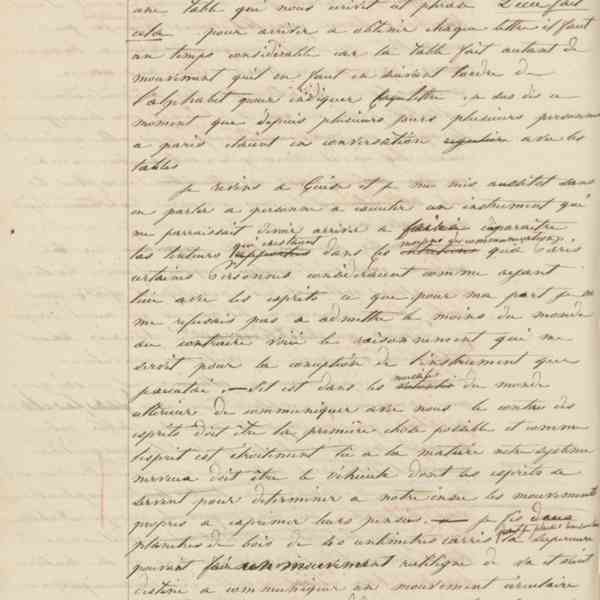 une table qui nous écrivit cet phrase Dieu fait
cela pour arriver a obtenir chaque lettre il faut
un temps considérable car la table fait autant de
mouvement qu'il en faut en suivant l'ordre de
l'alphabet pour indiquer la lettre. je sus dis ce
moment que depuis plusieurs jours plusieurs personnes
a paris étaient en conversation regulière avec les
tables
je revins a Guise et je me mis aussitot sans
en parler a personne a executer un instrument qui
me parraissait devoir arriver a faire disparaître
les lenteurs qui existaient dans les moyens de communication qu'a Paris
certaines Personnes considéraient comme ayant
lieu avec les esprits ce que pour ma part je ne
me refusais pas a admettre le moins du monde
au contraire voici le raisonnement qui me
servit pour la conception de l'instrument que
j'exécutai. — S'il est dans les du monde
ultérieur de communiquer avec nous le contact des
esprits doit être la première chose possible et comme
l'esprit est étroitement lié a la matière notre système
nerveux doit être le véhicule dont les esprits se
servent pour déterminer a notre insu les mouvements
propres a exprimer leurs pensées. — je fis deux
planches de bois de 40 centimètres carrés la supérieure
pouvant faire un mouvement rectiligne de va et vient
destiné a communiquer un mouvement circulaire